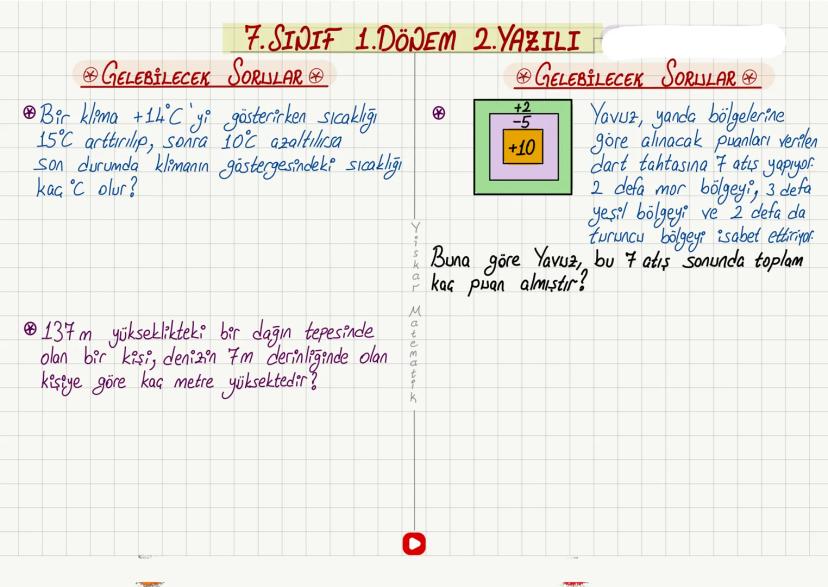 7. SINIF 1. DÖNEM 2. YAZILI
GELEBİLECEK SORULAR
Bir klima +14°C'yi gösterirken sıcaklığı
15°C arttırılıp, sonra 10°C azaltılırsa
son durumda klimanın göstergesindeki sıcaklığı
kaç °C olur?
137 m yükseklikteki bir dağın tepesinde
olan bir kişi, denizin 7m derinliğinde olan
kişiye göre kaç metre yüksektedir?
Yiskar Matematik
GELEBİLECEK SORULAR
+2
-5
+10
Yavuz, yanda bölgelerine
göre alınacak puanları verilen
dart tahtasına 7 atış yapıyor.
2 defa mor bölgeyi, 3 defa
yeşil bölgeyi ve 2 defa da
turuncu bölgeyi isabet ettiriyor.
Buna göre Yavuz, bu 7 atış sonunda toplam
kaç puan almıştır?